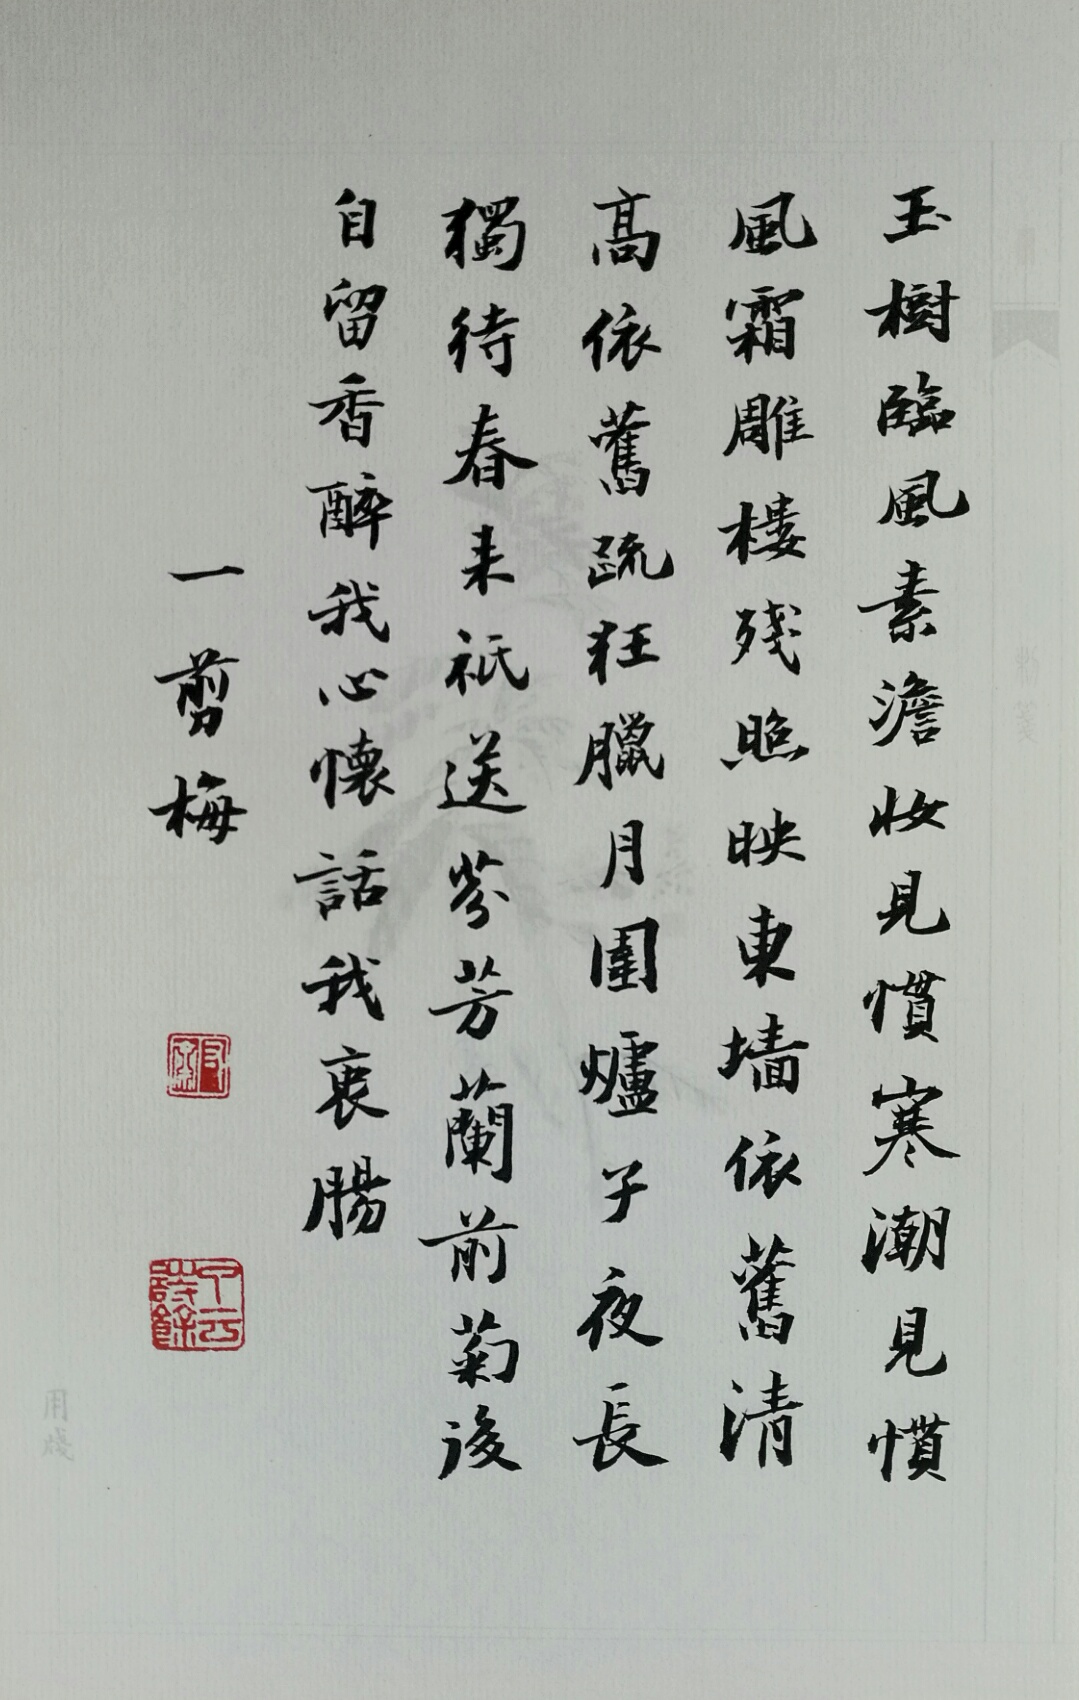 玉樹臨風素澹妝見慣寒潮見慣
風霜雕樓殘照映東墻依舊清
高依舊疏狂臘月圍爐子夜長
獨待春来祇送芬芳蘭前菊後
自留香醉我心懷話我衷腸
一剪梅